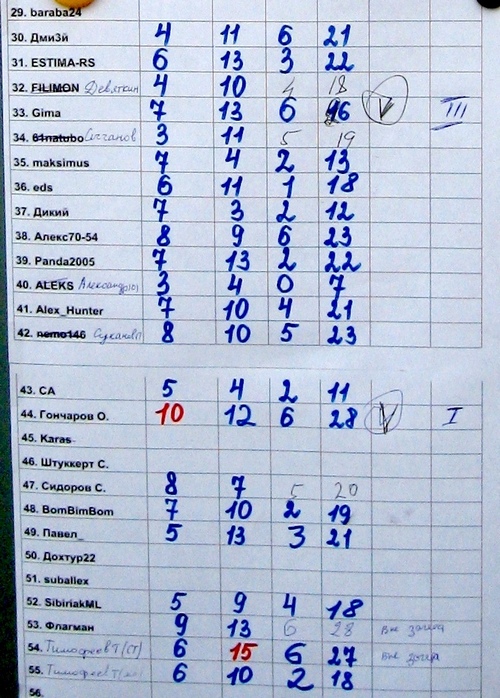 29. baraba24
30. Дми3й 4 11 6 21
31. ESTIMA-RS 6 13 3 22
32. FILIMON Девяткин 4 10 4 18
33. Gima 7 13 6 26 V III
34. 61natubo 3 11 5 19
35. maksimus 7 4 2 13
36. eds 6 11 1 18
37. Дикий 7 3 2 12
38. Алекс70-54 8 9 6 23
39. Panda2005 7 13 2 22
40. ALEKS 3 4 0 7
41. Alex_Hunter 7 10 4 21
42. nemo146 8 10 5 23
43. CA 5 4 2 11
44. Гончаров О. 10 12 6 28 V I
45. Karas
46. Штуккерт С.
47. Сидоров С. 8 7 5 20
48. BomBimBom 7 10 2 19
49. Павел_ 5 13 3 21
50. Дохтур22
51. suballex
52. SibiriakML 5 9 4 18
53. Флагман 9 13 6 28 вне зачета
54. Тимофеев Т (СТ) 6 15 6 27 вне зачета
55. Тимофеев Т 6 10 2 18
56.